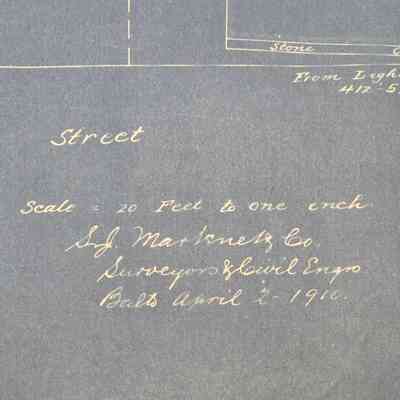 Stone
From Ligh
412-5
Street
Scale = 20 Feet to one inch.
S.J. Martenet & Co.
Surveyors & Civil Engrs
Balto April 2 - 1910.